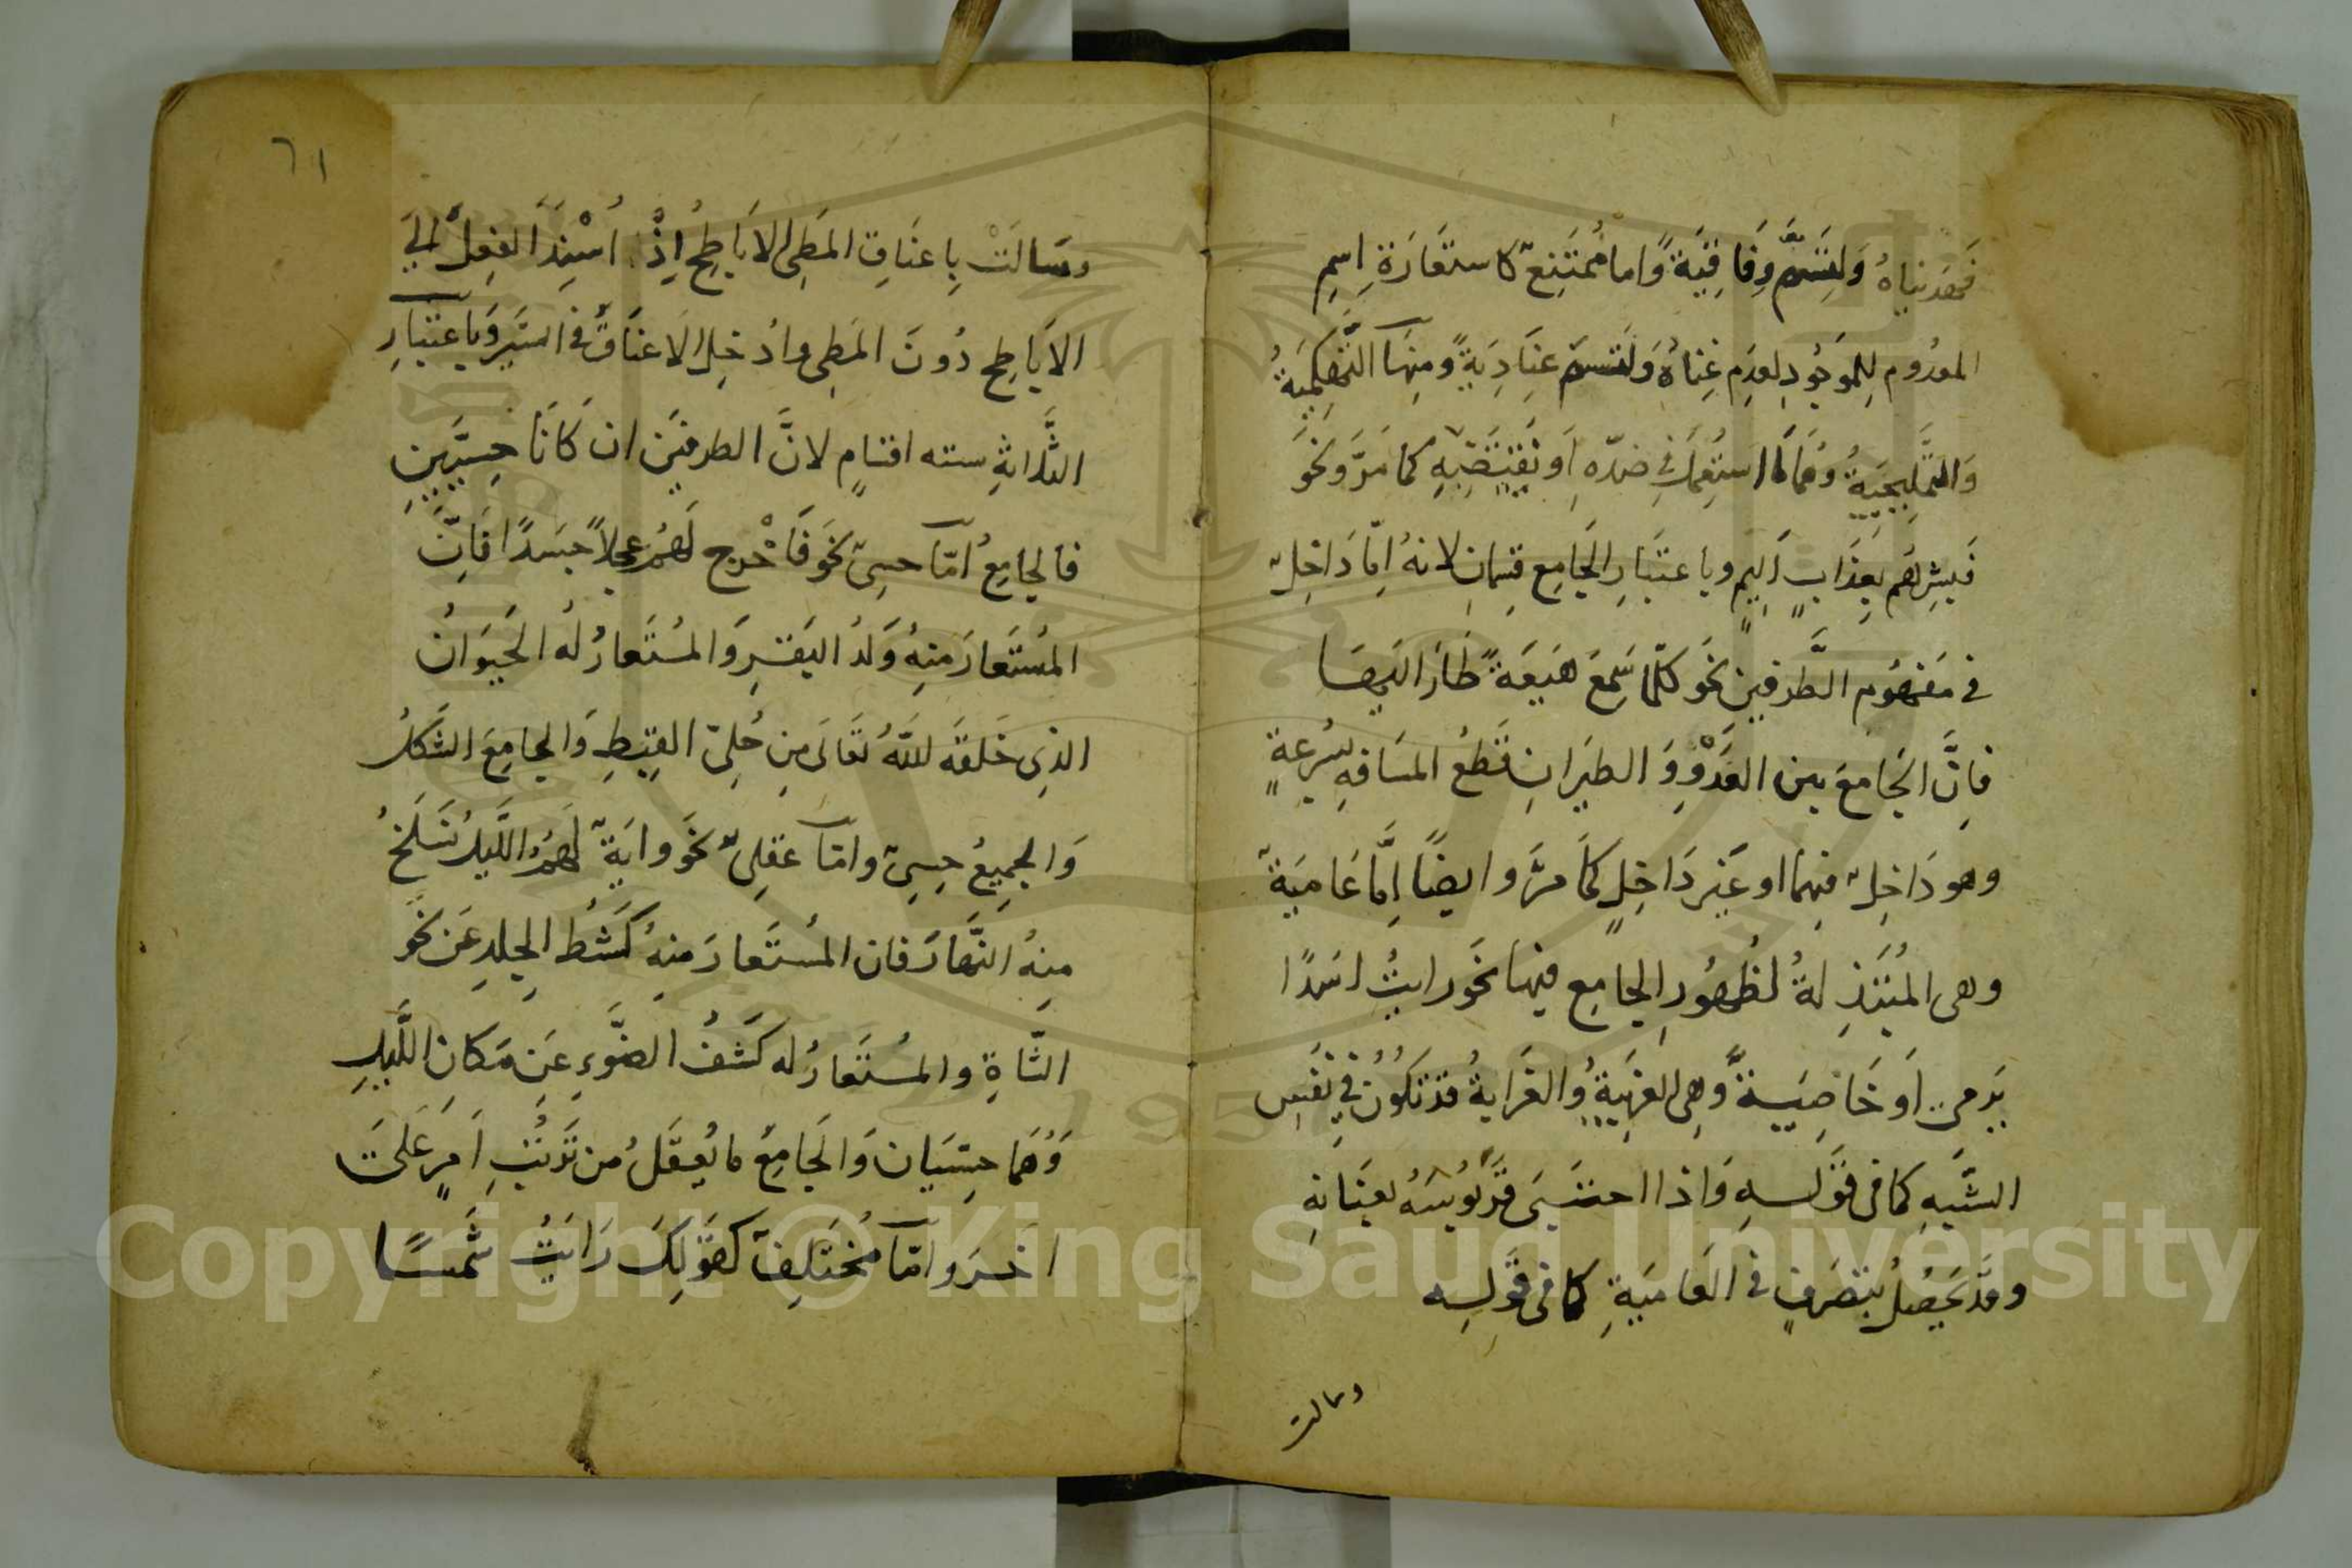 فهديناه ولتسم وفاقية واما ممتنع كاستعارة اسم
المعدوم للموجود لعدم غناه ولتسم عنادية ومنها التهكمية
والتمليحية وهما ما استعمل في ضده او نقيضه كما مر ونحو
فبشرهم بعذاب اليم وباعتبار الجامع قسمان لانه اما داخل
في مفهوم الطرفين نحو كلما سمع هيعة طار اليها
فان الجامع بين العدو والطيران قطع المسافه بسرعة
وهو داخل فيهما او غير داخل كما مر وايضا اما عامية
وهي المبتذلة لظهور الجامع فيها نحو رايت اسدا
يرمى او خاصية وهي الغريبة والغرابة قد تكون في نفس
الشبه كما في قوله واذا احتبى قربوسه بعنانه
وقد يحصل بتصرف في العامية كما في قوله
وسالت
٦١
وسالت باعناق المطى الاباطح اذ اسند الفعل الى
الاباطح دون المطى وادخل الاعناق في السير وباعتبار
الثلاثة سته اقسام لان الطرفين ان كانا حسيين
فالجامع اما حسى نحو فاخرج لهم عجلا جسدا فان
المستعار منه ولد البقر والمستعار له الحيوان
الذى خلقه الله تعالى من حلى القبط والجامع الشكل
والجميع حسى واما عقلى نحو واية لهم الليل نسلخ
منه النهار فان المستعار منه كشط الجلد عن نحو
الشاة والمستعار له كشف الضوء عن مكان الليل
وهما حسيان والجامع ما يعقل من ترتب امر على
اخر واما مختلف كقولك رايت شمسا
Copyright © King Saud University
1957